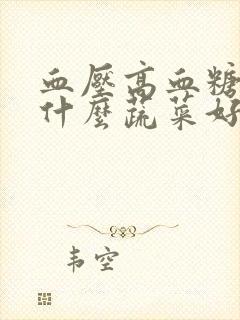 血壓高血糖
什麼蔬菜好
韦空